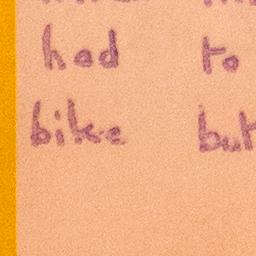 had to
bike but